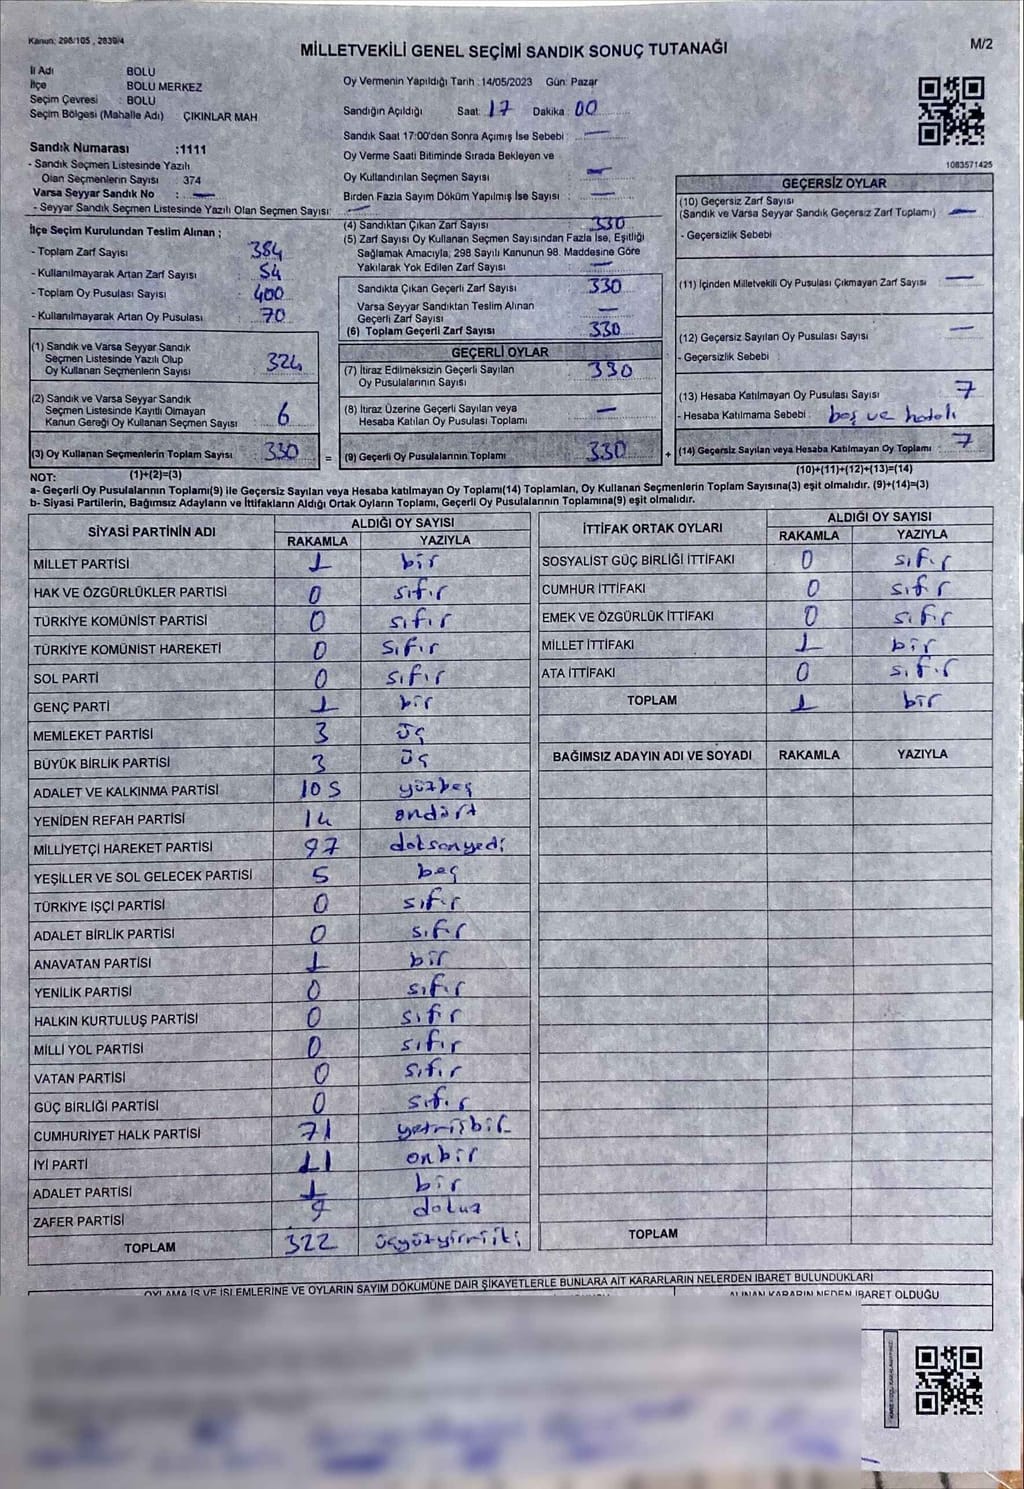 Kanun: 298/105 , 2839/4
MİLLETVEKİLİ GENEL SEÇİMİ SANDIK SONUÇ TUTANAĞI
M/2
İl Adı BOLU
İlçe BOLU MERKEZ
Seçim Çevresi : BOLU
Seçim Bölgesi (Mahalle Adı) ÇIKINLAR MAH
Sandık Numarası :1111
- Sandık Seçmen Listesinde Yazılı
Olan Seçmenlerin Sayısı : 374
Varsa Seyyar Sandık No : —
- Seyyar Sandık Seçmen Listesinde Yazılı Olan Seçmen Sayısı: —
İlçe Seçim Kurulundan Teslim Alınan ;
- Toplam Zarf Sayısı 384
- Kullanılmayarak Artan Zarf Sayısı 54
- Toplam Oy Pusulası Sayısı 400
- Kullanılmayarak Artan Oy Pusulası 70
(1) Sandık ve Varsa Seyyar Sandık
Seçmen Listesinde Yazılı Olup
Oy Kullanan Seçmenlerin Sayısı 324
(2) Sandık ve Varsa Seyyar Sandık
Seçmen Listesinde Kayıtlı Olmayan
Kanun Gereği Oy Kullanan Seçmen Sayısı 6
(3) Oy Kullanan Seçmenlerin Toplam Sayısı 330
(1)+(2)=(3)
Oy Vermenin Yapıldığı Tarih : 14/05/2023 Gün: Pazar
Sandığın Açıldığı Saat: 17 Dakika : 00
Sandık Saat 17:00'den Sonra Açımış İse Sebebi : —
Oy Verme Saati Bitiminde Sırada Bekleyen ve
Oy Kullandırılan Seçmen Sayısı : —
Birden Fazla Sayım Döküm Yapılmış İse Sayısı : —
(4) Sandıktan Çıkan Zarf Sayısı 330
(5) Zarf Sayısı Oy Kullanan Seçmen Sayısından Fazla İse, Eşitliği
Sağlamak Amacıyla, 298 Sayılı Kanunun 98. Maddesine Göre
Yakılarak Yok Edilen Zarf Sayısı —
Sandıkta Çıkan Geçerli Zarf Sayısı 330
Varsa Seyyar Sandıktan Teslim Alınan
Geçerli Zarf Sayısı —
(6) Toplam Geçerli Zarf Sayısı 330
GEÇERLİ OYLAR
(7) İtiraz Edilmeksizin Geçerli Sayılan
Oy Pusulalarının Sayısı 330
(8) İtiraz Üzerine Geçerli Sayılan veya
Hesaba Katılan Oy Pusulası Toplamı —
= (9) Geçerli Oy Pusulalarının Toplamı 330
1083571425
GEÇERSİZ OYLAR
(10) Geçersiz Zarf Sayısı
(Sandık ve Varsa Seyyar Sandık Geçersiz Zarf Toplamı) —
- Geçersizlik Sebebi
(11) İçinden Milletvekili Oy Pusulası Çıkmayan Zarf Sayısı —
(12) Geçersiz Sayılan Oy Pusulası Sayısı —
- Geçersizlik Sebebi :
(13) Hesaba Katılmayan Oy Pusulası Sayısı 7
- Hesaba Katılmama Sebebi : boş ve hatalı
+ (14) Geçersiz Sayılan veya Hesaba Katılmayan Oy Toplamı 7
(10)+(11)+(12)+(13)=(14)
NOT:
a- Geçerli Oy Pusulalarının Toplamı(9) ile Geçersiz Sayılan veya Hesaba katılmayan Oy Toplamı(14) Toplamları, Oy Kullanan Seçmenlerin Toplam Sayısına(3) eşit olmalıdır. (9)+(14)=(3)
b- Siyasi Partilerin, Bağımsız Adayların ve İttifakların Aldığı Ortak Oyların Toplamı, Geçerli Oy Pusulalarının Toplamına(9) eşit olmalıdır.
SİYASİ PARTİNİN ADI ALDIĞI OY SAYISI
RAKAMLA YAZIYLA
MİLLET PARTİSİ 1 bir
HAK VE ÖZGÜRLÜKLER PARTİSİ 0 sıfır
TÜRKİYE KOMÜNİST PARTİSİ 0 sıfır
TÜRKİYE KOMÜNİST HAREKETİ 0 sıfır
SOL PARTİ 0 sıfır
GENÇ PARTİ 1 bir
MEMLEKET PARTİSİ 3 üç
BÜYÜK BİRLİK PARTİSİ 3 üç
ADALET VE KALKINMA PARTİSİ 105 yüzbeş
YENİDEN REFAH PARTİSİ 14 ondört
MİLLİYETÇİ HAREKET PARTİSİ 97 doksanyedi
YEŞİLLER VE SOL GELECEK PARTİSİ 5 beş
TÜRKİYE İŞÇİ PARTİSİ 0 sıfır
ADALET BİRLİK PARTİSİ 0 sıfır
ANAVATAN PARTİSİ 1 bir
YENİLİK PARTİSİ 0 sıfır
HALKIN KURTULUŞ PARTİSİ 0 sıfır
MİLLİ YOL PARTİSİ 0 sıfır
VATAN PARTİSİ 0 sıfır
GÜÇ BİRLİĞİ PARTİSİ 0 sıfır
CUMHURİYET HALK PARTİSİ 71 yetmişbir
İYİ PARTİ 11 onbir
ADALET PARTİSİ 1 bir
ZAFER PARTİSİ 9 dokuz
TOPLAM 322 üçyüzyirmiiki
İTTİFAK ORTAK OYLARI ALDIĞI OY SAYISI
RAKAMLA YAZIYLA
SOSYALİST GÜÇ BİRLİĞİ İTTİFAKI 0 sıfır
CUMHUR İTTİFAKI 0 sıfır
EMEK VE ÖZGÜRLÜK İTTİFAKI 0 sıfır
MİLLET İTTİFAKI 1 bir
ATA İTTİFAKI 0 sıfır
TOPLAM 1 bir
BAĞIMSIZ ADAYIN ADI VE SOYADI RAKAMLA YAZIYLA
TOPLAM
OYLAMA İŞ VE İŞLEMLERİNE VE OYLARIN SAYIM DÖKÜMÜNE DAİR ŞİKAYETLERLE BUNLARA AİT KARARLARIN NELERDEN İBARET BULUNDUKLARI
ALINAN KARARIN NEDEN İBARET OLDUĞU